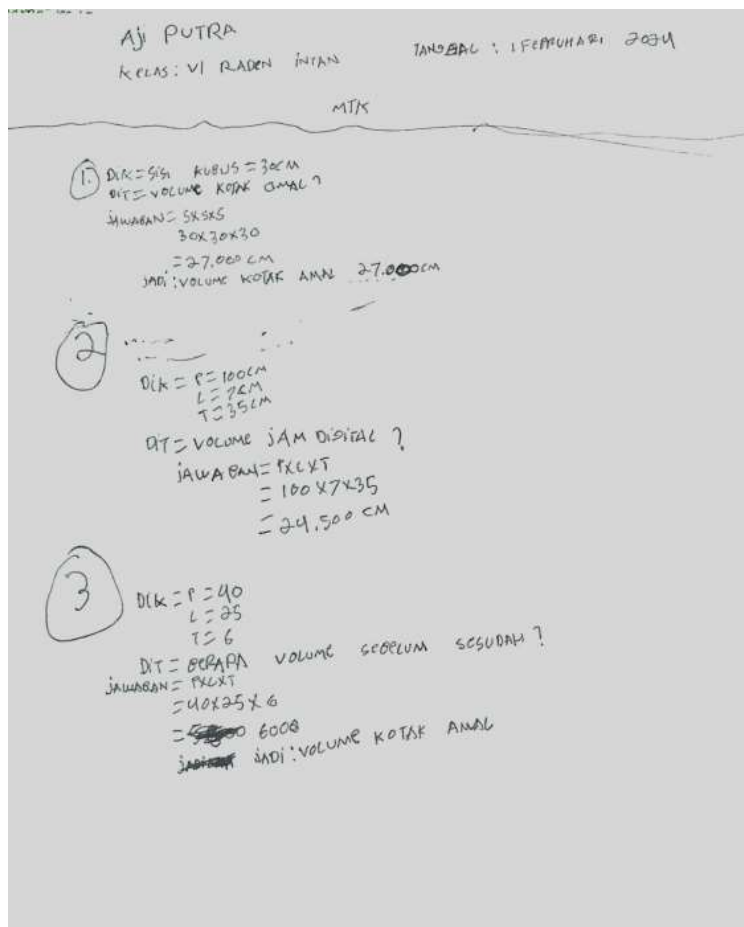 Aji PUTRA
KELAS: VI RADEN INTAN
TANGGAL : 1 FEPRUHARI 2024
MTK
1. DIK = SiSi KUBUS = 30CM
DIT = VOLUME KOTAK AMAL ?
JAWABAN = SXSXS
30X30X30
= 27.000 CM
JADI : VOLUME KOTAK AMAL 27.000CM
2
DIK = P = 100CM
L = 7CM
T = 35CM
DIT = VOLUME JAM DIGITAL ?
JAWABAN = PXLXT
= 100X7X35
= 24.500 CM
3 DIK = P = 40
L = 25
T = 6
DIT = BERAPA VOLUME SEBELUM SESUDAH ?
JAWABAN = PXLXT
= 40X25X6
= 6000
JADI : VOLUME KOTAK AMAL